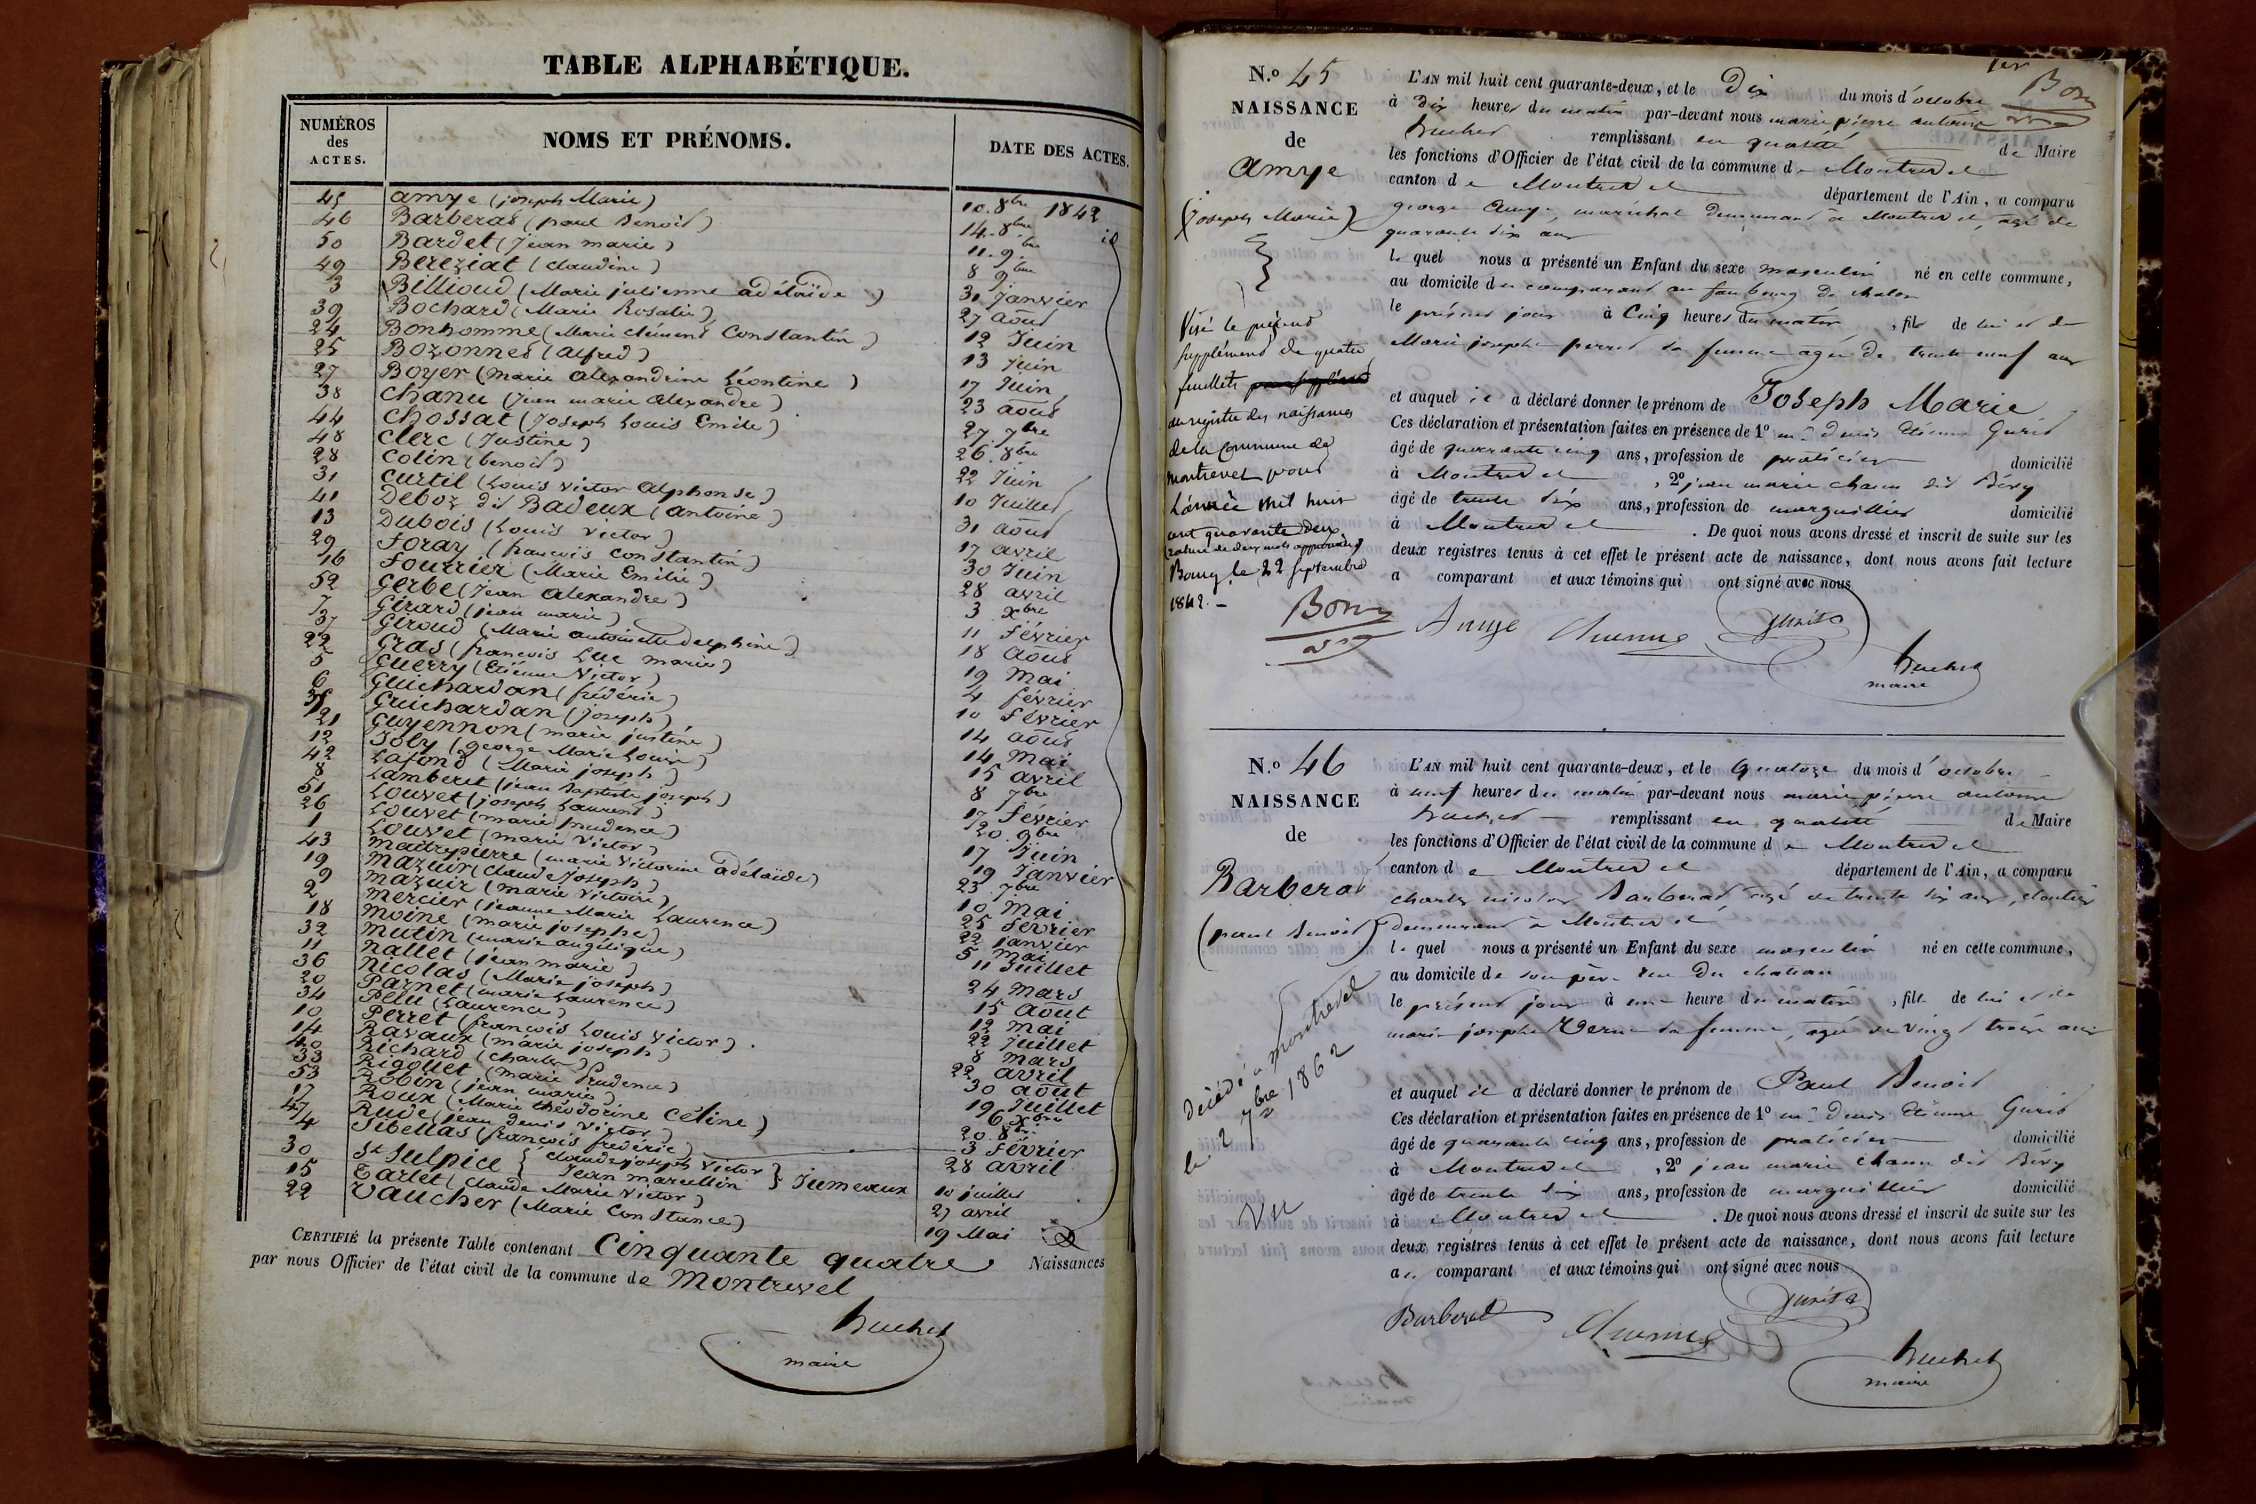 TABLE ALPHABÉTIQUE.
NUMÉROS des ACTES.
NOMS ET PRÉNOMS.
DATE DES ACTES.
45 amye (joseph Marie) 10 8bre 1842
46 Barberat (paul Benoit) 14 8bre id
50 Bardet (jean marie) 11 9bre
49 Bereziat (claudine) 8 9bre
3 Billioud (Marie julienne adélaïde) 31 janvier
39 Bochard (Marie Rosalie) 27 août
24 Bonhomme (Marie clément Constantin) 12 Juin
25 Bozonnet (alfred) 13 Juin
27 Boyer (marie alexandrine Léontine) 17 Juin
38 Chanu (jean marie alexandre) 23 août
44 Chossat (Joseph Louis Emile) 27 7bre
48 Clerc (Justine) 26 8bre
28 Colin (benoit) 22 Juin
31 Curtil (Louis victor alphonse) 10 Juillet
41 Deboz dit Badeux (antoine) 31 août
13 Dubois (Louis victor) 17 avril
29 Foray (francois constantin) 30 Juin
16 Fourrier (Marie Emilie) 28 avril
52 Gerbe (jean alexandre) 3 xbre
7 Girard (jean marie) 11 février
37 Giroud (Marie antoinette delphine) 18 août
22 Gras (francois Luc marie) 19 Mai
5 Guerry (Etienne Victor) 4 février
6 Guichardan (frédéric) 10 février
Guichardan (joseph) 14 août
21 Guyennon (marie justine) 14 Mai
12 Joly (george Marie Louise) 15 avril
42 Lafond (Marie joseph) 8 7bre
8 Lamberet (jean baptiste joseph) 17 février
51 Louvet (joseph Laurent) 20 9bre
26 Louvet (marie prudence) 17 Juin
1 Louvet (marie victor) 19 Janvier
43 Maitrepierre (marie victorine adélaïde) 23 7bre
19 Mazuir (claude Joseph) 10 Mai
9 Mazuir (marie victoire) 25 février
2 Mercier (jeanne Marie Laurence) 22 janvier
18 Moine (marie josephe) 5 Mai
32 Mutin (marie angélique) 11 Juillet
11 Nallet (jean marie) 24 Mars
36 Nicolas (Marie joseph) 15 août
20 Parnet (marie Laurence) 12 Mai
34 Pelu (Laurence) 22 Juillet
10 Perret (francois Louis victor) 8 Mars
14 Ravaux (marie joseph) 22 avril
40 Richard (charles) 30 août
33 Rigollet (marie prudence) 19 Juillet
53 Robin (jean marie) 6 Xbre
17 Roux (Marie théodorine Céline)
47 Rude (jean denis victor) 20 8bre
4 Sibellas (francois frédéric) 3 février
28 avril
30 St Sulpice { claude joseph victor / Jean marcellin } Jumeaux 10 juillet
15 Tarlet (claude Marie victor) 27 avril
22 Vaucher (Marie Constance) 19 Mai
CERTIFIÉ la présente Table contenant Cinquante quatre Naissances
par nous Officier de l'état civil de la commune de Montrevel
Buchet
maire
1er
N.º 45
NAISSANCE
de
amye
(joseph Marie)
Visé le présent
supplément de quatre
feuillets
au registre des naissances
de la commune de
montrevel pour
L'année mil huit
cent quarante deux
(rature de deux mots approuvée)
Bourg, le 22 septembre
1842. –
L'AN mil huit cent quarante-deux, et le Dix du mois d'octobre
à Dix heures du matin par-devant nous marie pierre antoine
Buchet remplissant en qualité de Maire
les fonctions d'Officier de l'état civil de la commune de Montrevel
canton de Montrevel département de l'Ain, a comparu
george amye, maréchal demeurant à Montrevel, agé de
quarante six ans
lequel nous a présenté un Enfant du sexe masculin né en cette commune,
au domicile du comparant au faubourg de chalon
le présent jour à Cinq heures du matin, fils de lui et de
Marie josephe perret sa femme agée de trente neuf ans
et auquel il a déclaré donner le prénom de Joseph Marie
Ces déclaration et présentation faites en présence de 1º mr denis Etienne Gurit
âgé de quarante cinq ans, profession de praticien domicilié
à Montrevel, 2º jean marie chanu dit Bévy
âgé de trente six ans, profession de marguillier domicilié
à Montrevel. De quoi nous avons dressé et inscrit de suite sur les
deux registres tenus à cet effet le présent acte de naissance, dont nous avons fait lecture
a comparant et aux témoins qui ont signé avec nous
Amye
Gurit
Buchet
maire
N.º 46
NAISSANCE
de
Barberat
(paul Benoit)
Décédé à Montrevel
le 2 7bre 1862
Vu
L'AN mil huit cent quarante-deux, et le Quatorze du mois d'octobre
à neuf heures du matin par-devant nous marie pierre antoine
Buchet remplissant en qualité de Maire
les fonctions d'Officier de l'état civil de la commune de Montrevel
canton de Montrevel département de l'Ain, a comparu
charles nicolas Barberat, agé de trente six ans, cloutier
demeurant à Montrevel
lequel nous a présenté un Enfant du sexe masculin né en cette commune,
au domicile de son père rue du chateau
le présent jour à une heure du matin, fils de lui et de
marie josephe Verne sa femme, agée de vingt trois ans
et auquel il a déclaré donner le prénom de Paul Benoit
Ces déclaration et présentation faites en présence de 1º mr denis Etienne Gurit
âgé de quarante cinq ans, profession de praticien domicilié
à Montrevel, 2º jean marie chanu dit Bévy
âgé de trente six ans, profession de marguillier domicilié
à Montrevel. De quoi nous avons dressé et inscrit de suite sur les
deux registres tenus à cet effet le présent acte de naissance, dont nous avons fait lecture
au comparant et aux témoins qui ont signé avec nous
Barberat
Gurit
Buchet
maire